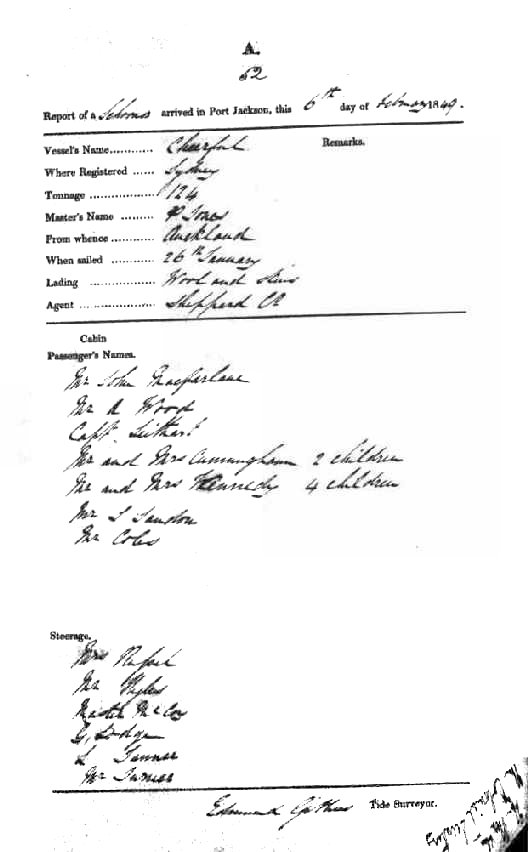 A.
52
Report of a Schooner arrived in Port Jackson, this 6th day of February 1849.
Vessel's Name............ Cheerful Remarks.
Where Registered ...... Sydney
Tonnage .................. 124
Master's Name ......... P Jones
From whence ............ Auckland
When sailed ............ 26th January
Lading .................. Wool and Skins
Agent .................... Sheppard
Cabin
Passenger's Names.
Mr John Macfarlane
Mr A Wood
Capt.
Mr and Mrs Cunningham 2 children
Mr and Mrs Kennedy 4 children
Mr
Mr Coles
Steerage.
Mrs
Mr
Master McCoy
G. Dodge
L Tanner
Mr Turner
Edmund Tide Surveyor.